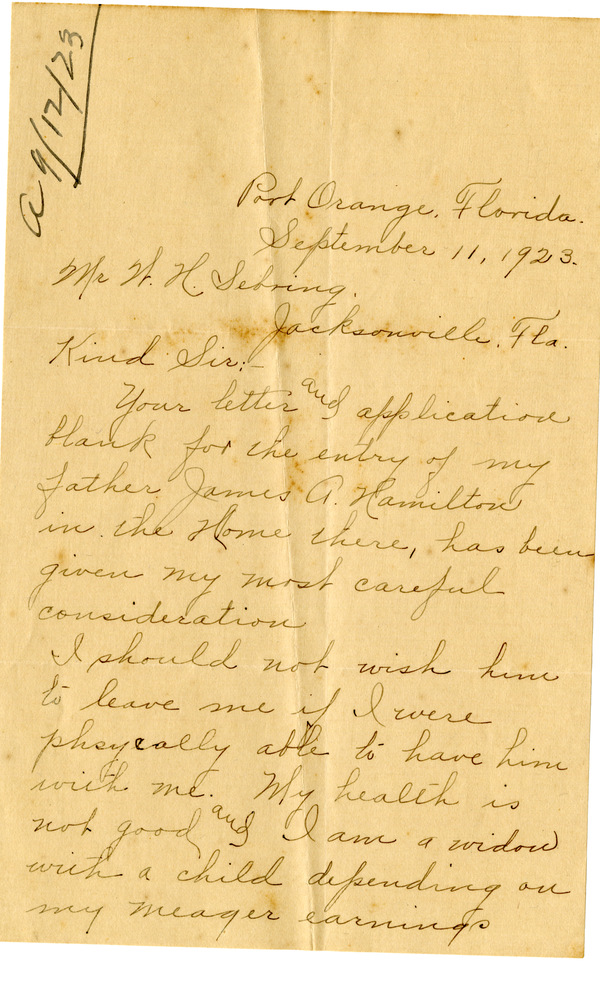 a 9/12/23
Port Orange, Florida.
September 11, 1923.
Mr W. H. Sebring.
Jacksonville, Fla.
Kind Sir:-
Your letter and application
blank for the entry of my
father James A. Hamilton
in the Home there, has been
given my most careful
consideration
I should not wish him
to leave me if I were
phsycally able to have him
with me. My health is
not good, and I am a widow
with a child depending on
my meager earnings